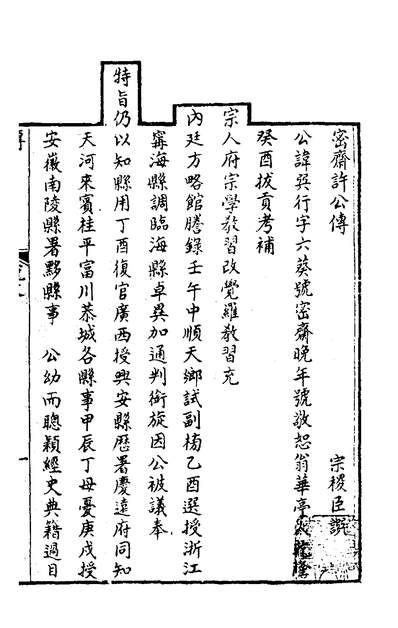 密齋許公傳　宗稷臣譔
公諱巽行字六葵號密齋晚年號敬恕翁華亭
癸酉拔貢考補
宗人府宗學敎習改覺羅敎習充
內廷方略館謄錄壬午中順天鄉試副榜乙酉選授浙江
甯海縣調臨海縣卓異加通判銜旋因公被議奉
特旨仍以知縣用丁酉復官廣西授興安縣歷署慶遠府同知
天河來賓桂平富川恭城各縣事甲辰丁母憂庚戌授
安徽南陵縣署黟縣事　公幼而聰穎經史典籍過目